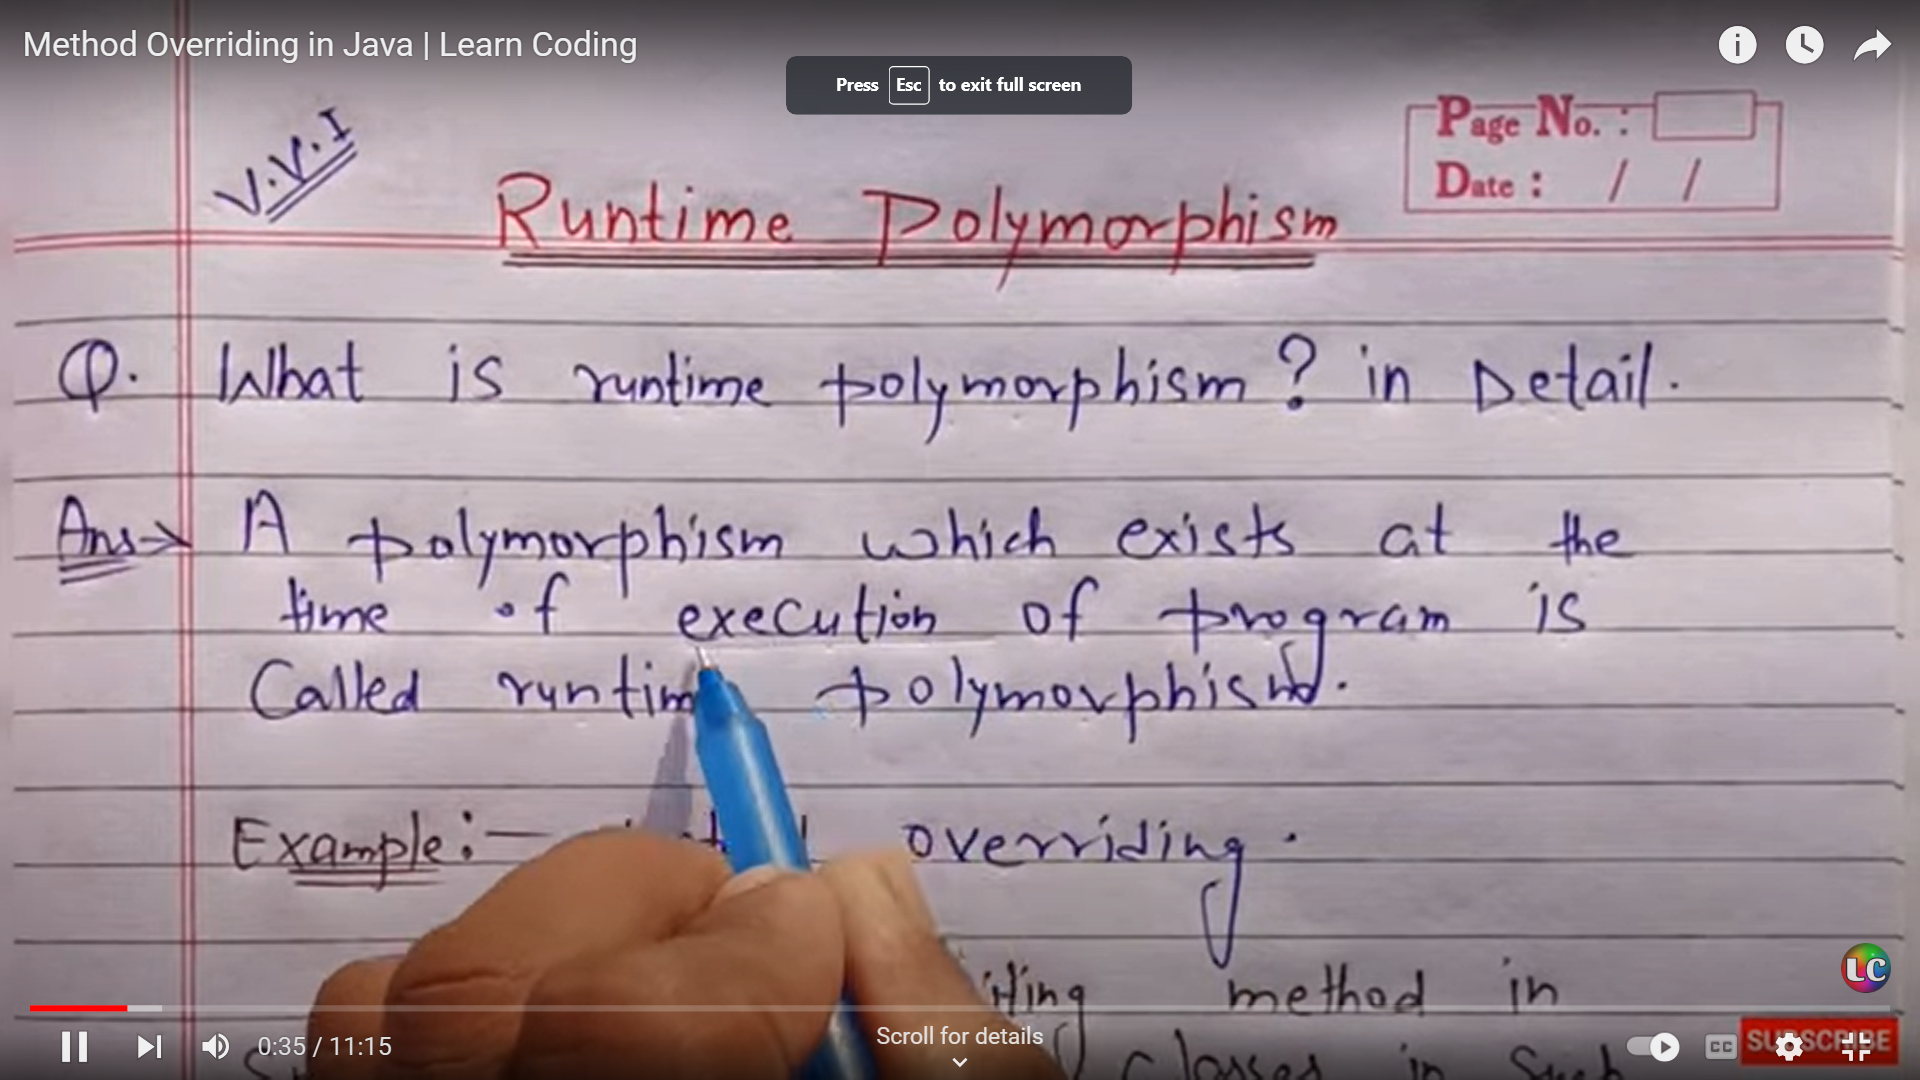 Method Overriding in Java | Learn Coding
Press Esc to exit full screen
V.V.I
Page No. :
Date : / /
Runtime Polymorphism
Q. What is runtime polymorphism? in Detail.
Ans→ A polymorphism which exists at the
time of execution of program is
Called runtim polymorphism.
Example:— overriding.
method in
Classes in Such
LC
Scroll for details
0:35 / 11:15
CC
SUBSCRIBE